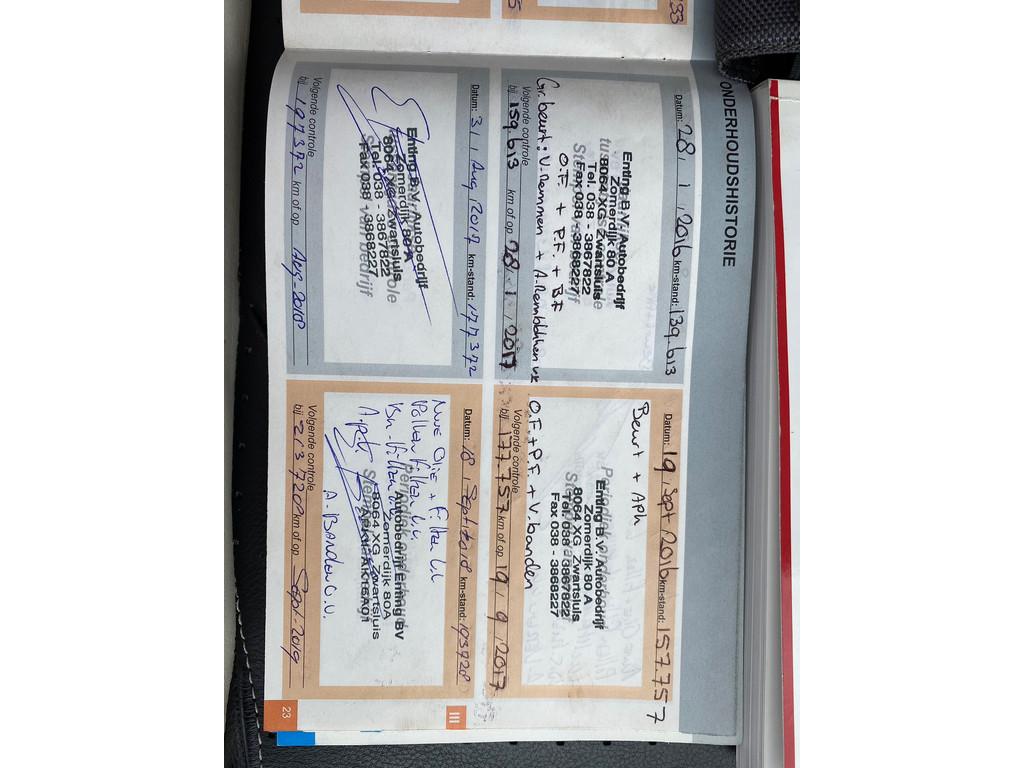 ONDERHOUDSHISTORIE
Datum: 28, 1, 2016 km-stand: 139.613
Enting B.V. Autobedrijf
Zomerdijk 80 A
8064 XG Zwartsluis
Tel. 038 - 3867822
Fax 038 - 3868227
Gr. beurt: V. Remmen + A. Remblokken
O.F. + P.F. + BF
Volgende controle
bij 159.613 km of op 28, 1, 2017
Datum: 19, Sept 2016 km-stand: 157.757
Beurt + Apk
Enting B.V. Autobedrijf
Zomerdijk 80 A
8064 XG Zwartsluis
Tel. 038 - 3867822
Fax 038 - 3868227
O.F. + P.F. + V. banden
Volgende controle
bij 177.757 km of op 19, 9, 2017
Datum: 31, Aug, 2017 km-stand: 177372
Enting B.V. Autobedrijf
Zomerdijk 80 A
8064 XG Zwartsluis
Tel. 038 - 3867822
Fax 038 - 3868227
Volgende controle
bij 197372 km of op Aug-2018
Datum: 18, Sept, 2018 km-stand: 193720
Olie + Filter
Pollen Filter
A.p.k
Autobedrijf Enting BV
Zomerdijk 80A
8064 XG Zwartsluis
A. Banden
Volgende controle
bij 213720 km of op Sept-2019
III
23